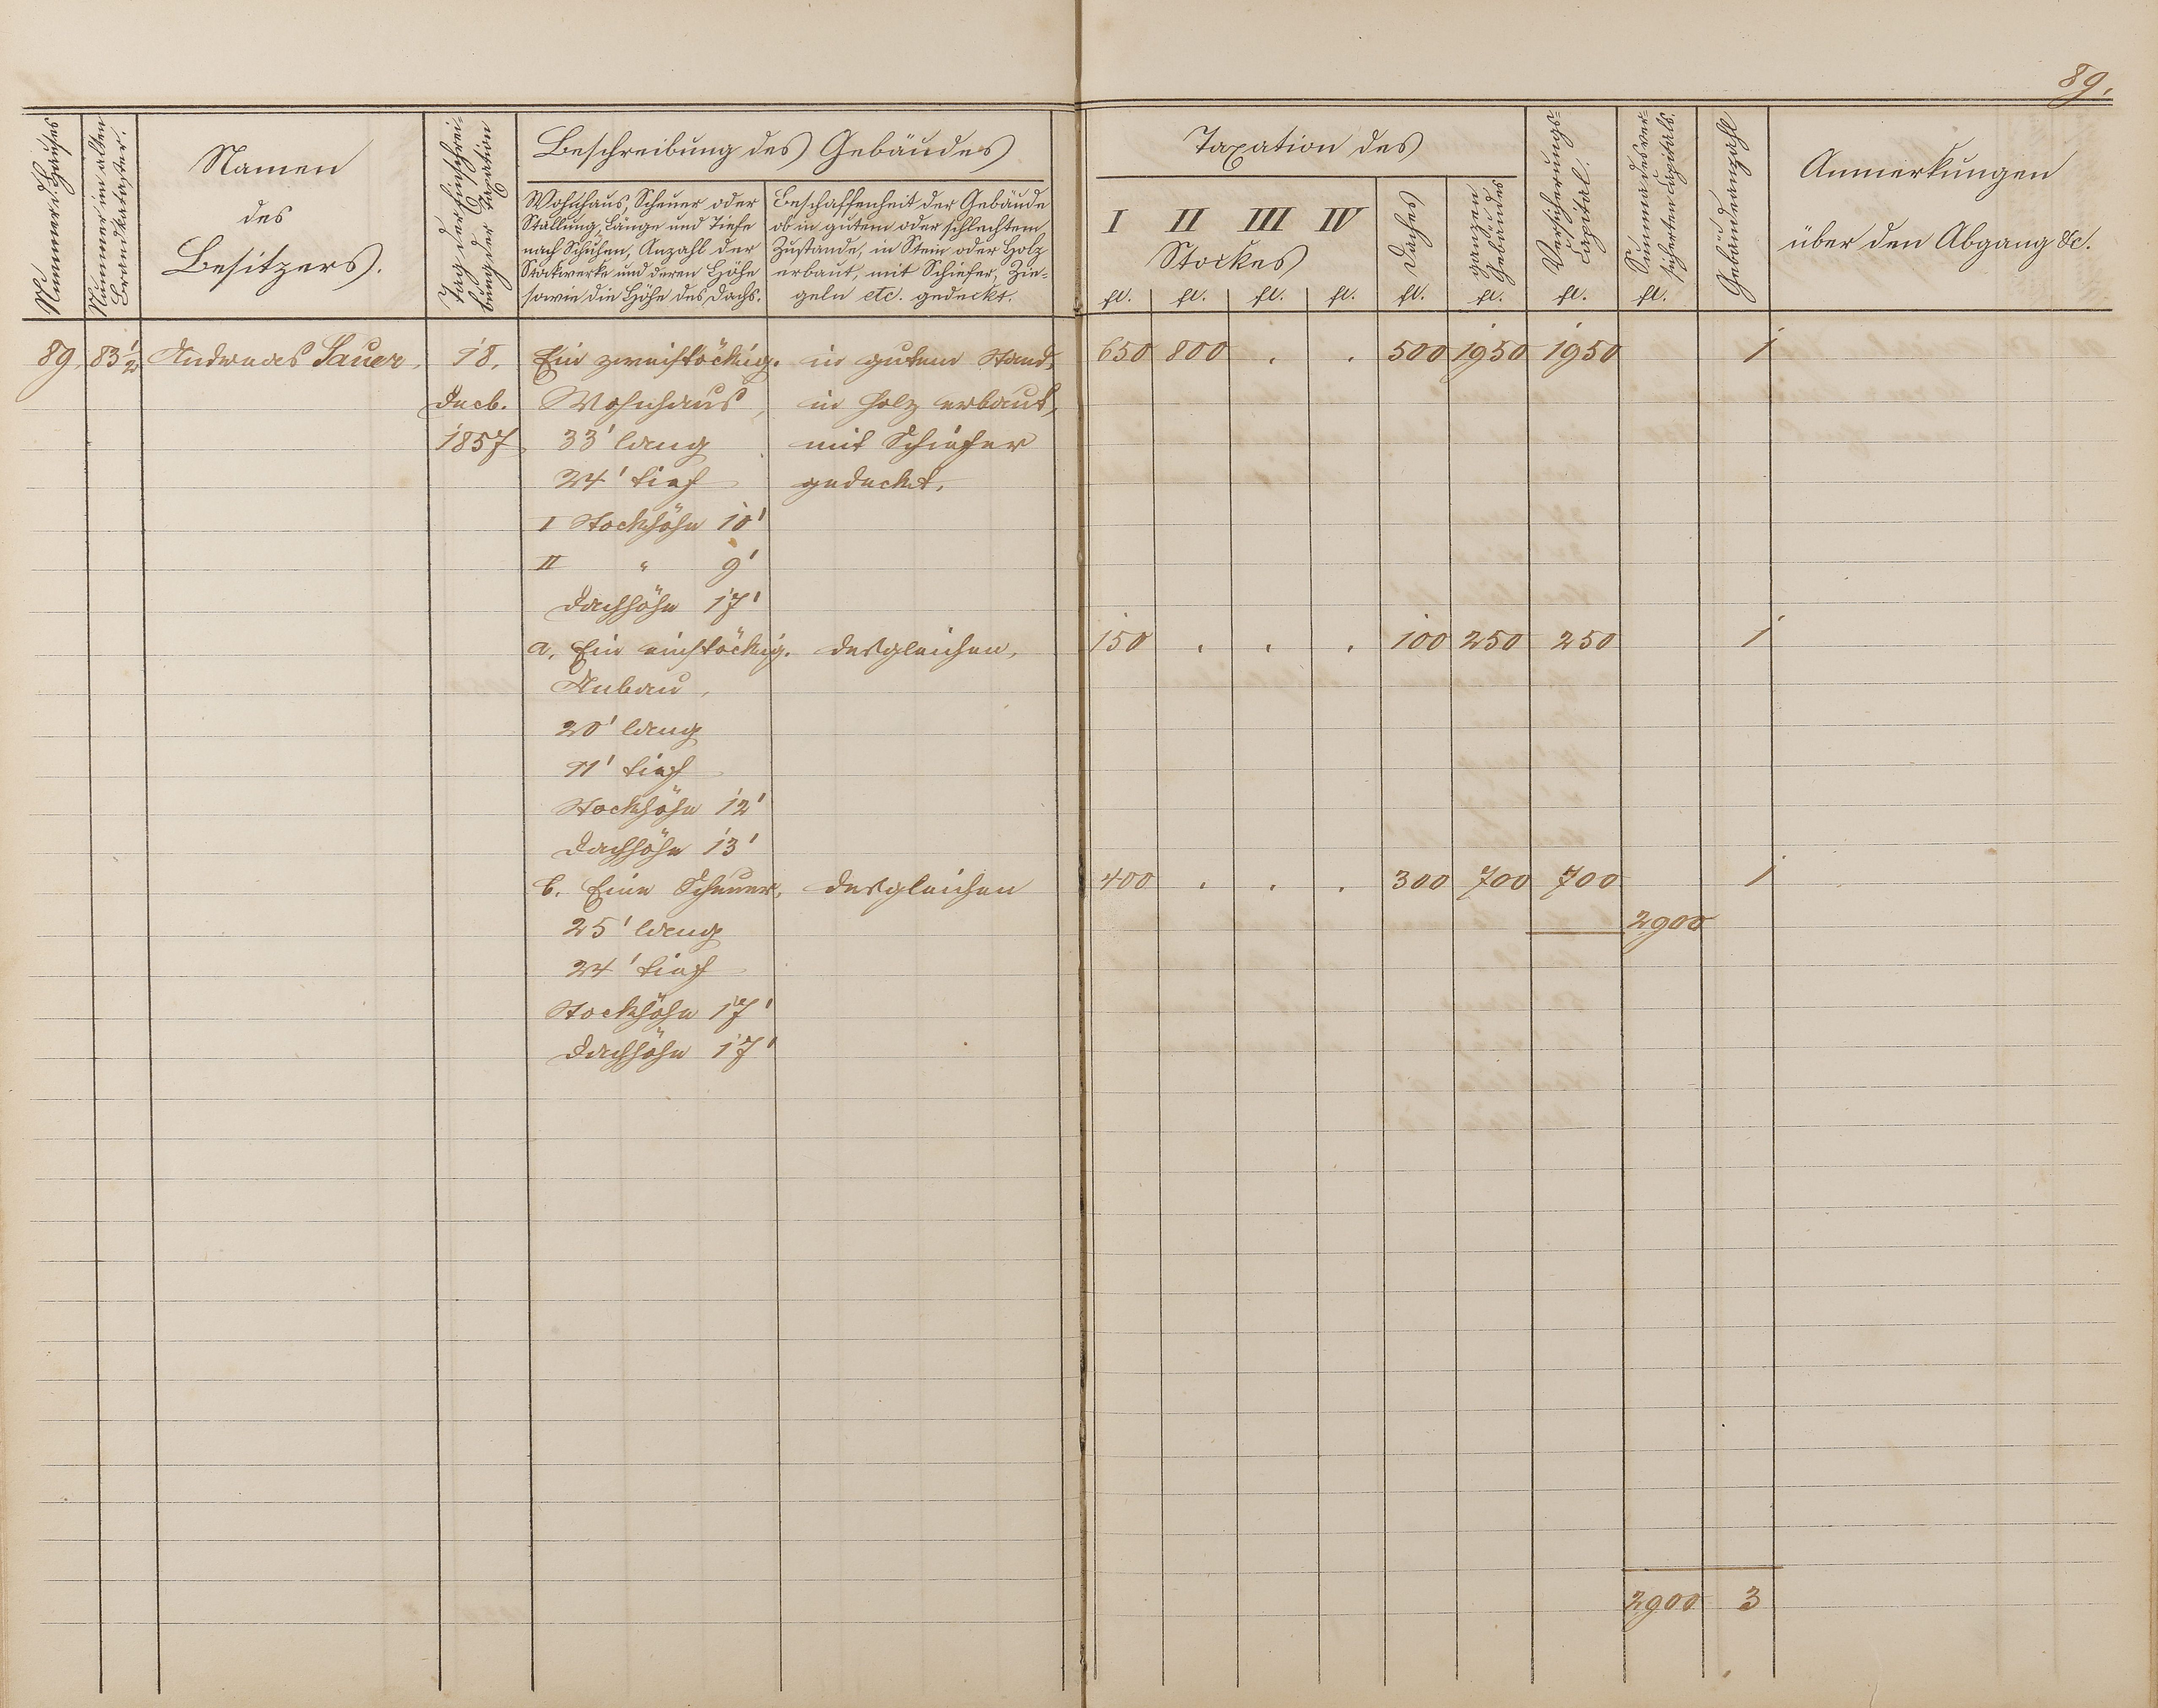 89.
Nummer d. Hauses
Nummer im alten
Brandkataster.
Namen
des
Besitzers.
Tag der Einschrei-
bung der Taxation
Beschreibung des Gebäudes
Wohnhaus, Scheuer oder
Stallung, Länge und Tiefe
nach Schuhen, Anzahl der
Stockwerke und deren Höhe
sowie die Höhe des Dachs.
Beschaffenheit der Gebäude
ob in gutem oder schlechtem
Zustande, in Stein oder Holz
erbaut, mit Schiefer, Zie-
geln etc. gedeckt.
Taxation des
I II III IV
Stockes
Daches
ganzen
Gebäudes
Versicherungs-
Capital.
Summa des ver-
sicherten Capitals.
Gebäudeanzahl
Anmerkungen
über den Abgang &c.
fl. fl. fl. fl. fl. fl. fl. fl.
89. 83½ Andreas Sauer, 18. Ein zweistöckig. in gutem Stand, 650 800 . . 500 1950 1950 1
Decb. Wohnhaus, in Holz erbaut,
1857 33' lang mit Schiefer
24' tief gedeckt.
I Stockhöhe 10'
II " 9'
Dachhöhe 17'
a. Ein einstöckig. desgleichen, 150 . . . 100 250 250 1
Anbau,
20' lang
11' tief
Stockhöhe 12'
Dachhöhe 13'
b. Eine Scheuer, desgleichen 400 . . . 300 700 700 1
25' lang 2900
24' tief
Stockhöhe 17'
Dachhöhe 17'
2900 3